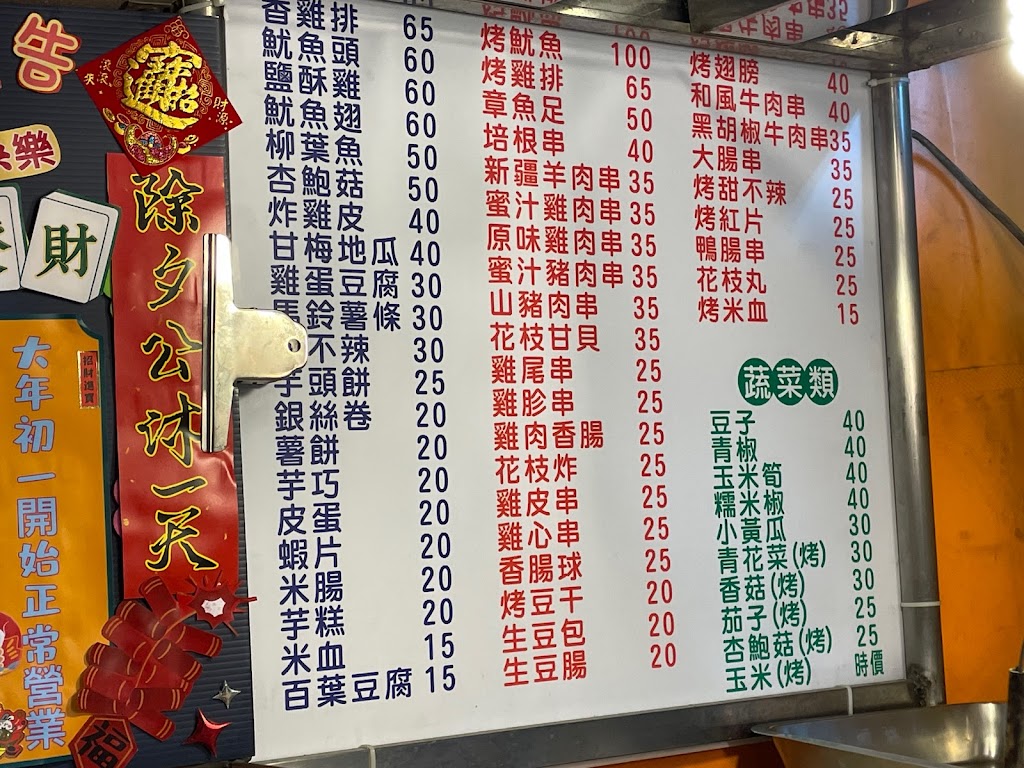 告
快樂
財
招財進寶
除夕公休一天
大年初一開始正常營業
招財進寶
福
香雞排 65
魷魚頭 60
鹽酥雞 60
魷魚翅 60
柳葉魚 50
杏鮑菇 50
炸雞皮 40
甘梅地瓜 40
雞蛋豆腐 30
馬鈴薯條 30
不辣 30
芋頭餅 25
銀絲卷 20
薯餅 20
芋巧 20
皮蛋 20
蝦片 20
米腸 20
芋糕 20
米血 15
百葉豆腐 15
烤魷魚 100
烤雞排 65
章魚足 50
培根串 40
新疆羊肉串 35
蜜汁雞肉串 35
原味雞肉串 35
蜜汁豬肉串 35
山豬肉串 35
花枝甘貝 35
雞尾串 25
雞胗串 25
雞肉香腸 25
花枝炸 25
雞皮串 25
雞心串 25
香腸球 25
烤豆干 20
生豆包 20
生豆腸 20
烤翅膀 40
和風牛肉串 40
黑胡椒牛肉串 35
大腸串 35
烤甜不辣 25
烤紅片 25
鴨腸串 25
花枝丸 25
烤米血 15
蔬菜類
豆子 40
青椒 40
玉米筍 40
糯米椒 40
小黃瓜 30
青花菜(烤) 30
香菇(烤) 30
茄子(烤) 25
杏鮑菇(烤) 25
玉米(烤) 時價